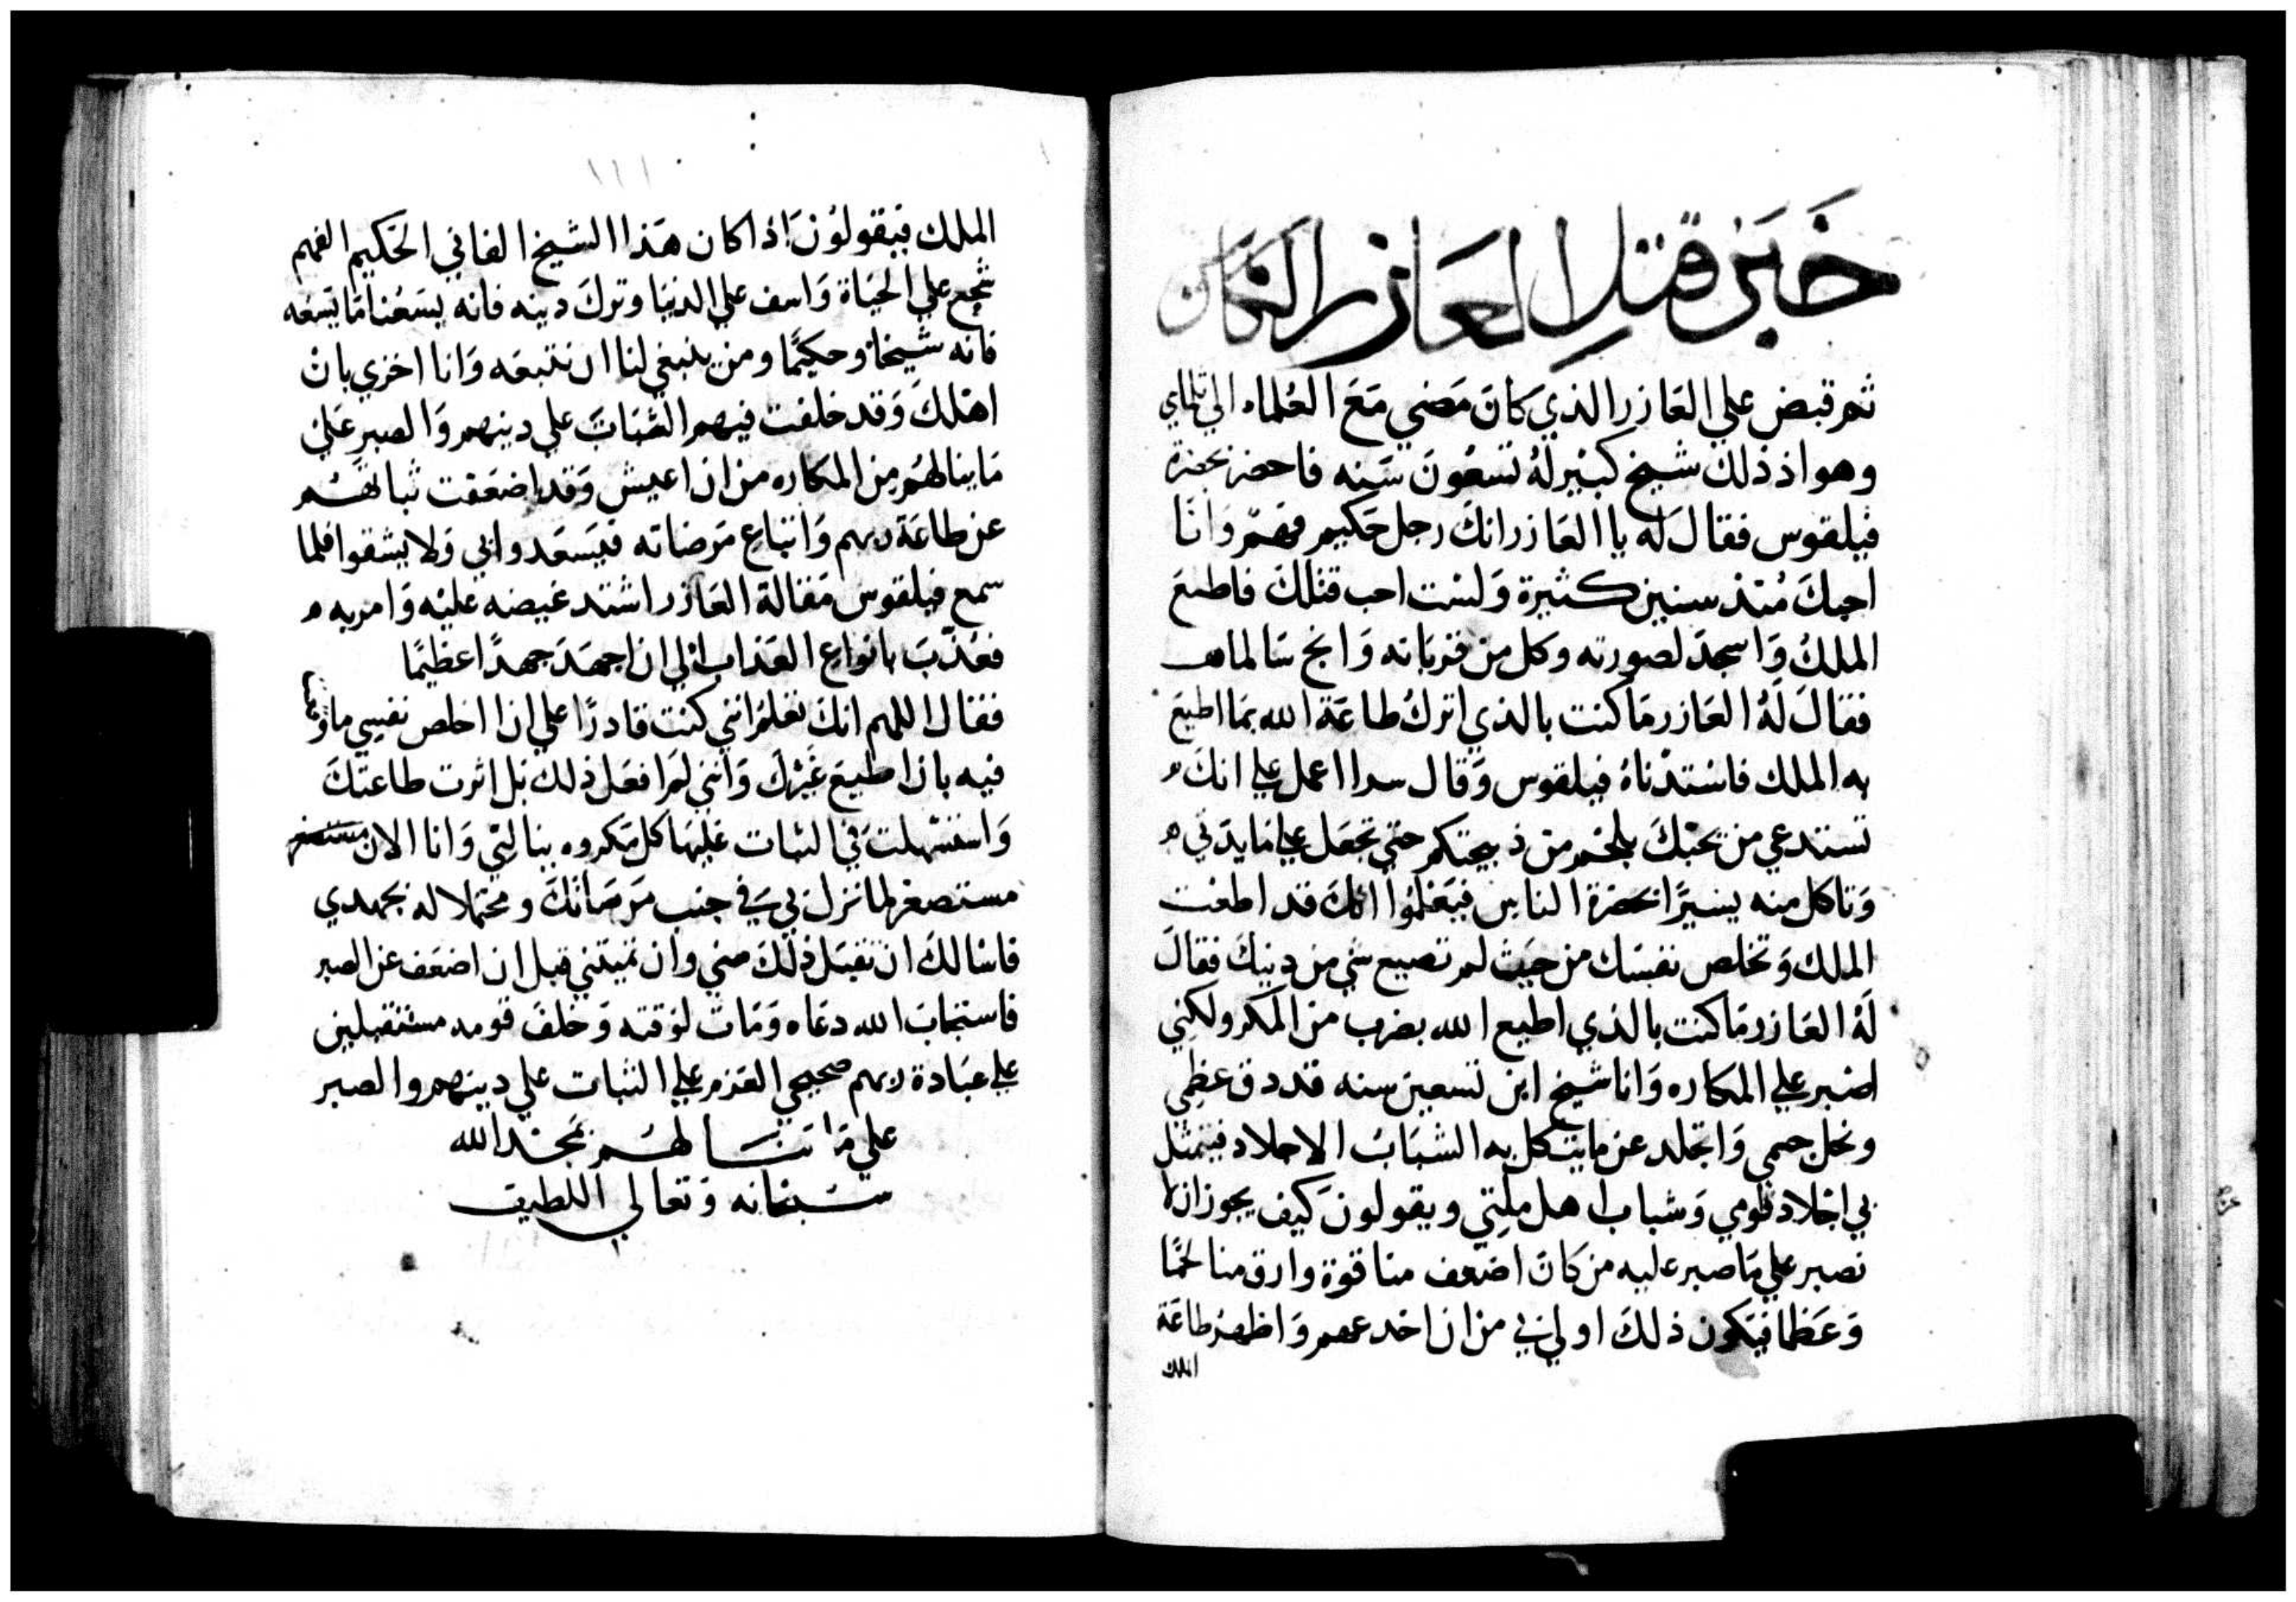 خَبَر قتلِ العَازر الكَاهن
ثم قبض علي العَازر الذي كَانَ مَضي مَعَ العُلماء الي تلماي
وهو اذ ذلك شيخ كبير لهُ تسعُونَ سَنه فاحضر بحضرة
فيلقوس فقال لَه يا العَازر انكَ رجل حَكيم فهمٌ وَانَا
احبكَ مُنذ سنين كثيرة وَلسْت احب قتلكَ فاطعَ
الملكُ وَاسجدَ لصورته وكل من قربَانه وَانج سَالماً
فقالَ لَهُ العَازر مَا كنت بالذي اترك طاعَة الله بمَا اطيع
به الملك فاسْتدْناهُ فيلقوس وَقال سرا اعمل علي انكَ
تستدعي من تحبْكَ بلحم من ذبيحتكم حتي تجعَل علي مَايدَتي
وَتاكل منه يسيرًا بحضرة الناس فيَعْلمُوا انكَ قد اطعْت
الملك وَتخلص نفسْكَ من حيَث لم تصيع شي من دينكَ فقالَ
لَهُ العَازر مَا كنت بالذي اطيع الله بضرب من المكر ولكني
اصْبر علي المكاره وَانا شيخ ابن تسعين سنه قد دق عظمي
ونحل جسمي وَاتجلد عن مايتكل به الشبَابْ الاجلاد فيتمثل
بي اجْلاد قومي وَشباب اهل ملتِي ويقولونَ كيف يجوز ان لا
نصبر علي مَا صبر عليه من كَانَ اضعف منا قوة وارق منا لحمًا
وَعَظما فيَكون ذلكَ اولي بي من ان اخدعهم وَاظهرْ طاعَة
الملك
١٦١
الملك فيَقولوُنَ اذا كان هَذا الشيخ الفاني الحَكيم الفهم
شحع علي الحيَاة وَاسف علي الدنيَا وتركَ دينه فانه يسَعُنا مَا يَسعَه
فانه شيخًا وحكيمًا ومن ينبغي لنا ان نتبعَه وَانا اخزي بانْ
اهْلكَ وَقد خلفت فيهم الثبَاتَ علي دينهم وَالصبر عَلي
مَاينالهُم من المكاره من ان اعيش وَقد اضعَفت ثباتهُم
عن طاعَة ربهم وَاتباع مَرضاته فيَسعَدوا بي وَلا يشقوا فلما
سمع فيلقوس مَقالة العَازر اشتد غيضه عليْه وَامر به
فعُذّبَ بانواع العَذاب الي ان اجهَدَ جهدًا عظيمًا
فقال اللهم انكَ تعْلمُ انني كنت قادرًا علي ان اخلص نفسِي ما وَقعت
فيه بان اطيعَ غَيْركَ وَانني لمَ افعَل ذلك بَل اثرت طاعتكَ
وَاستسْهلتَ في الثبات عَليهَا كل مَكروه ينالني وَانا الان
مستصغر لما نزل بي في جنب مَرضاتكَ ومحتملا له بجهدي
فاسَالكَ ان تقبَل ذلكَ مني وان تميتني قبل ان اضعَف عن الصبر
فاستجابَ الله دعَاه وَمَاتَ لوَقته وَخلفَ قومه مستقبلين
علي عبَادة ربهم صحيحي العَزم علي الثبات علي دينهم والصبر
علي مَا ينَالهُم بحَمد الله
سُبحانه وَتعالي اللطيف